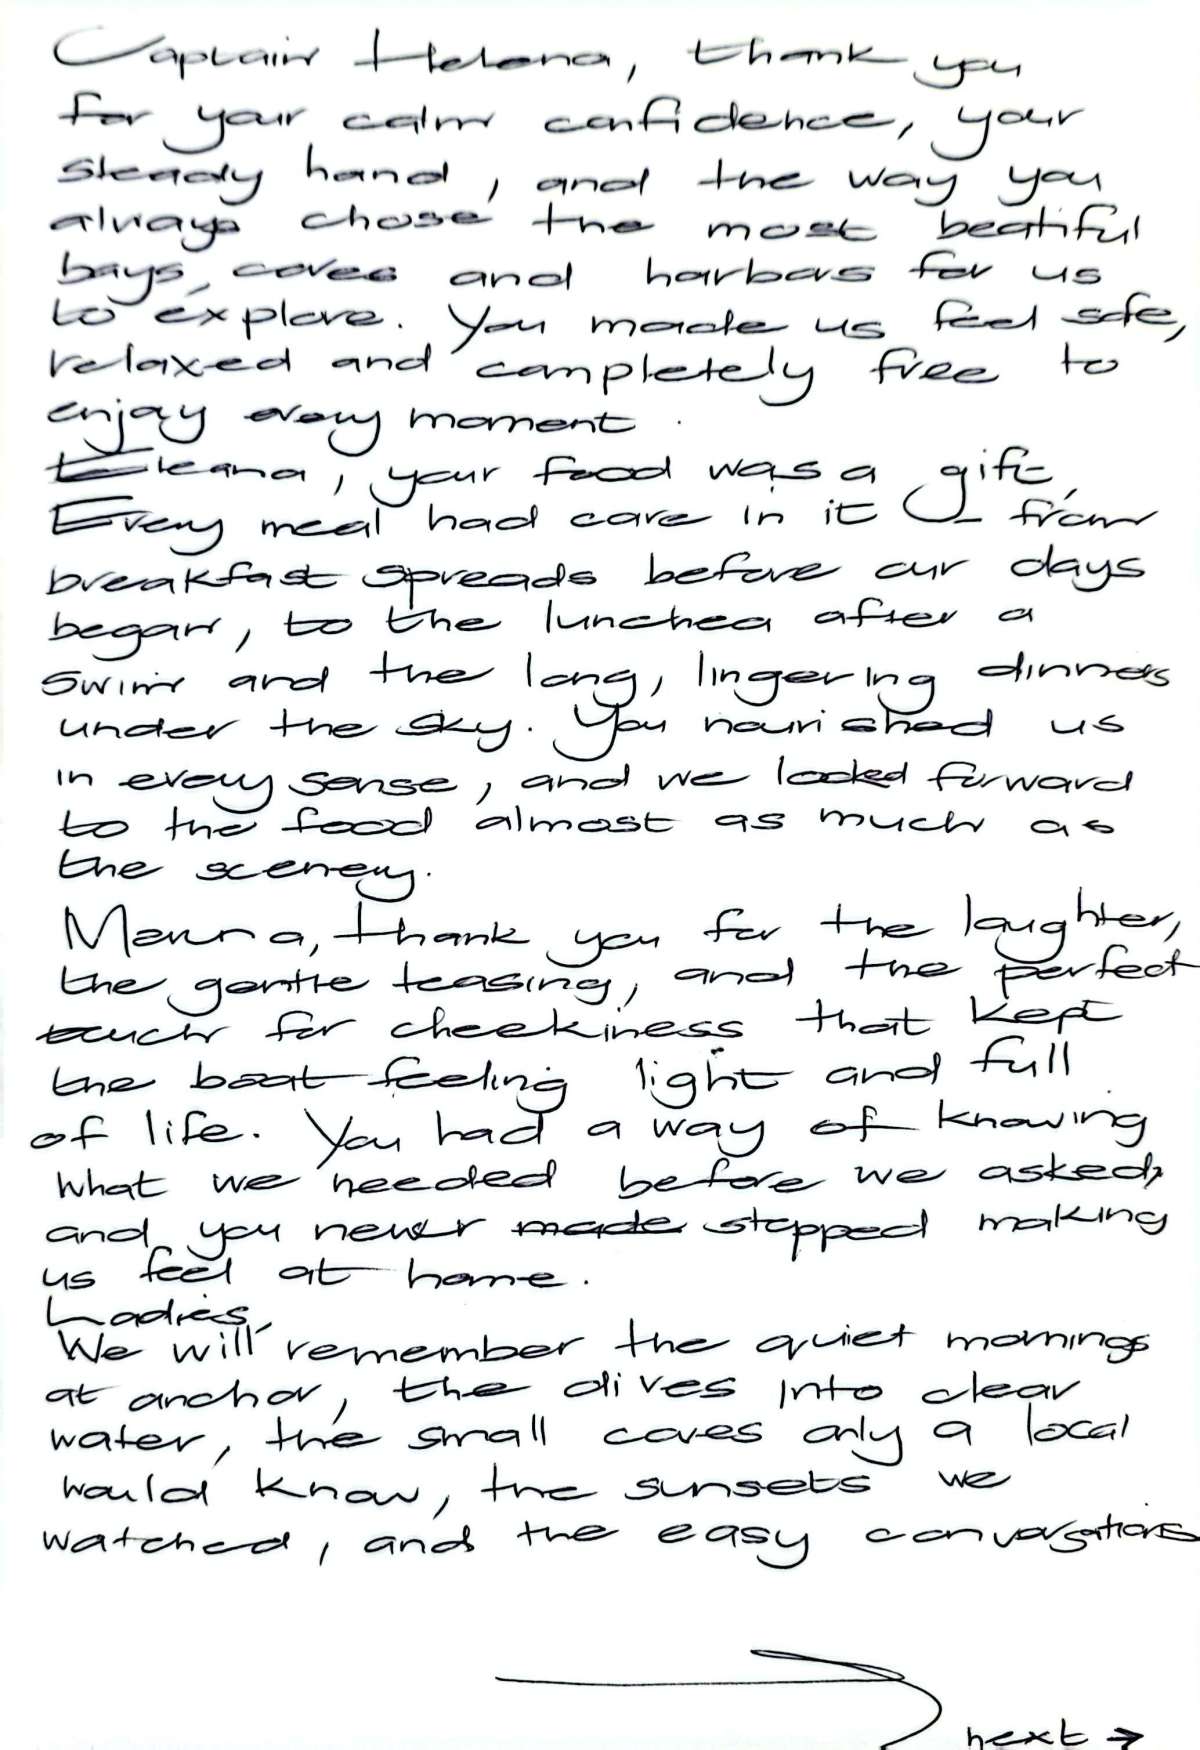 Captain Helena, thank you
for your calm confidence, your
steady hand, and the way you
always chose the most beatiful
bays, coves and harbors for us
to explore. You made us feel safe,
relaxed and completely free to
enjoy every moment.
Eleana, your food was a gift,
Every meal had care in it – from
breakfast spreads before our days
began, to the lunches after a
swim and the long, lingering dinners
under the sky. You nourished us
in every sense, and we looked forward
to the food almost as much as
the scenery.
thank you for the laughter,
the gentle teasing, and the perfect
touch for cheekiness that kept
the boat feeling light and full
of life. You had a way of knowing
what we needed before we asked,
and you never made stopped making
us feel at home.
Ladies,
We will remember the quiet mornings
at anchor, the dives into clear
water, the small coves only a local
would know, the sunsets we
watched, and the easy conversations
next →